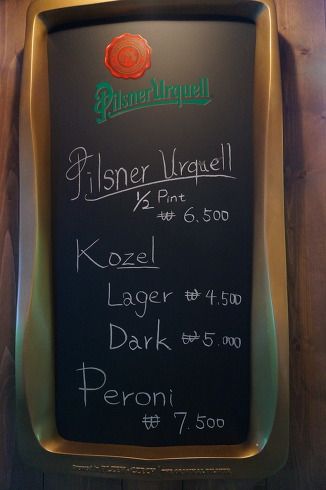 Pilsner Urquell
Pilsner Urquell
1/2 Pint
₩ 6.500
Kozel
Lager ₩ 4.500
Dark ₩ 5.000
Peroni
₩ 7.500